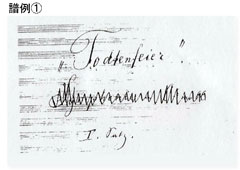 譜例①
„Todtenfeier".
I. Satz.